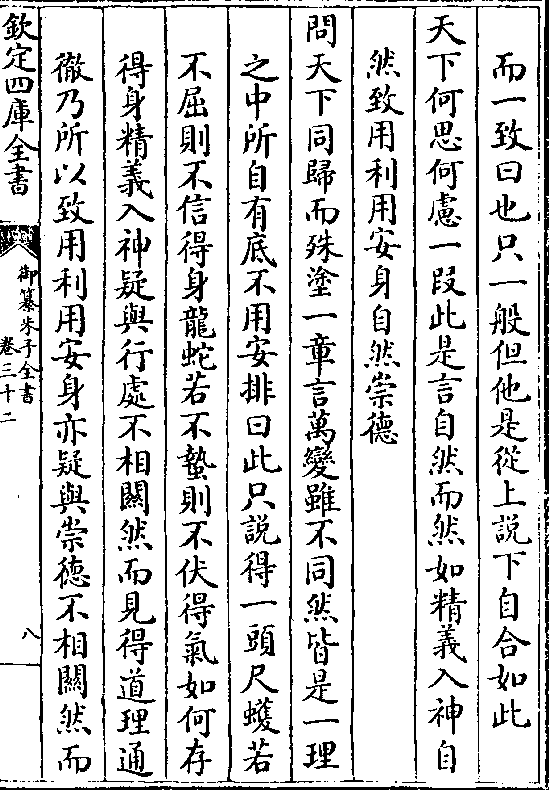 而一致曰也只一般但他是從上說下自合如此
天下何思何慮一段此是言自然而然如精義入神自
然致用利用安身自然崇德
問天下同歸而殊塗一章言萬變雖不同然皆是一理
之中所自有底不用安排曰此只說得一頭尺蠖若
不屈則不信得身龍蛇若不蟄則不伏得氣如何存
得身精義入神疑與行處不相關然而見得道理通
徹乃所以致用利用安身亦疑與崇德不相關然而
欽定四庫全書
御纂朱子全書
卷三十二
八